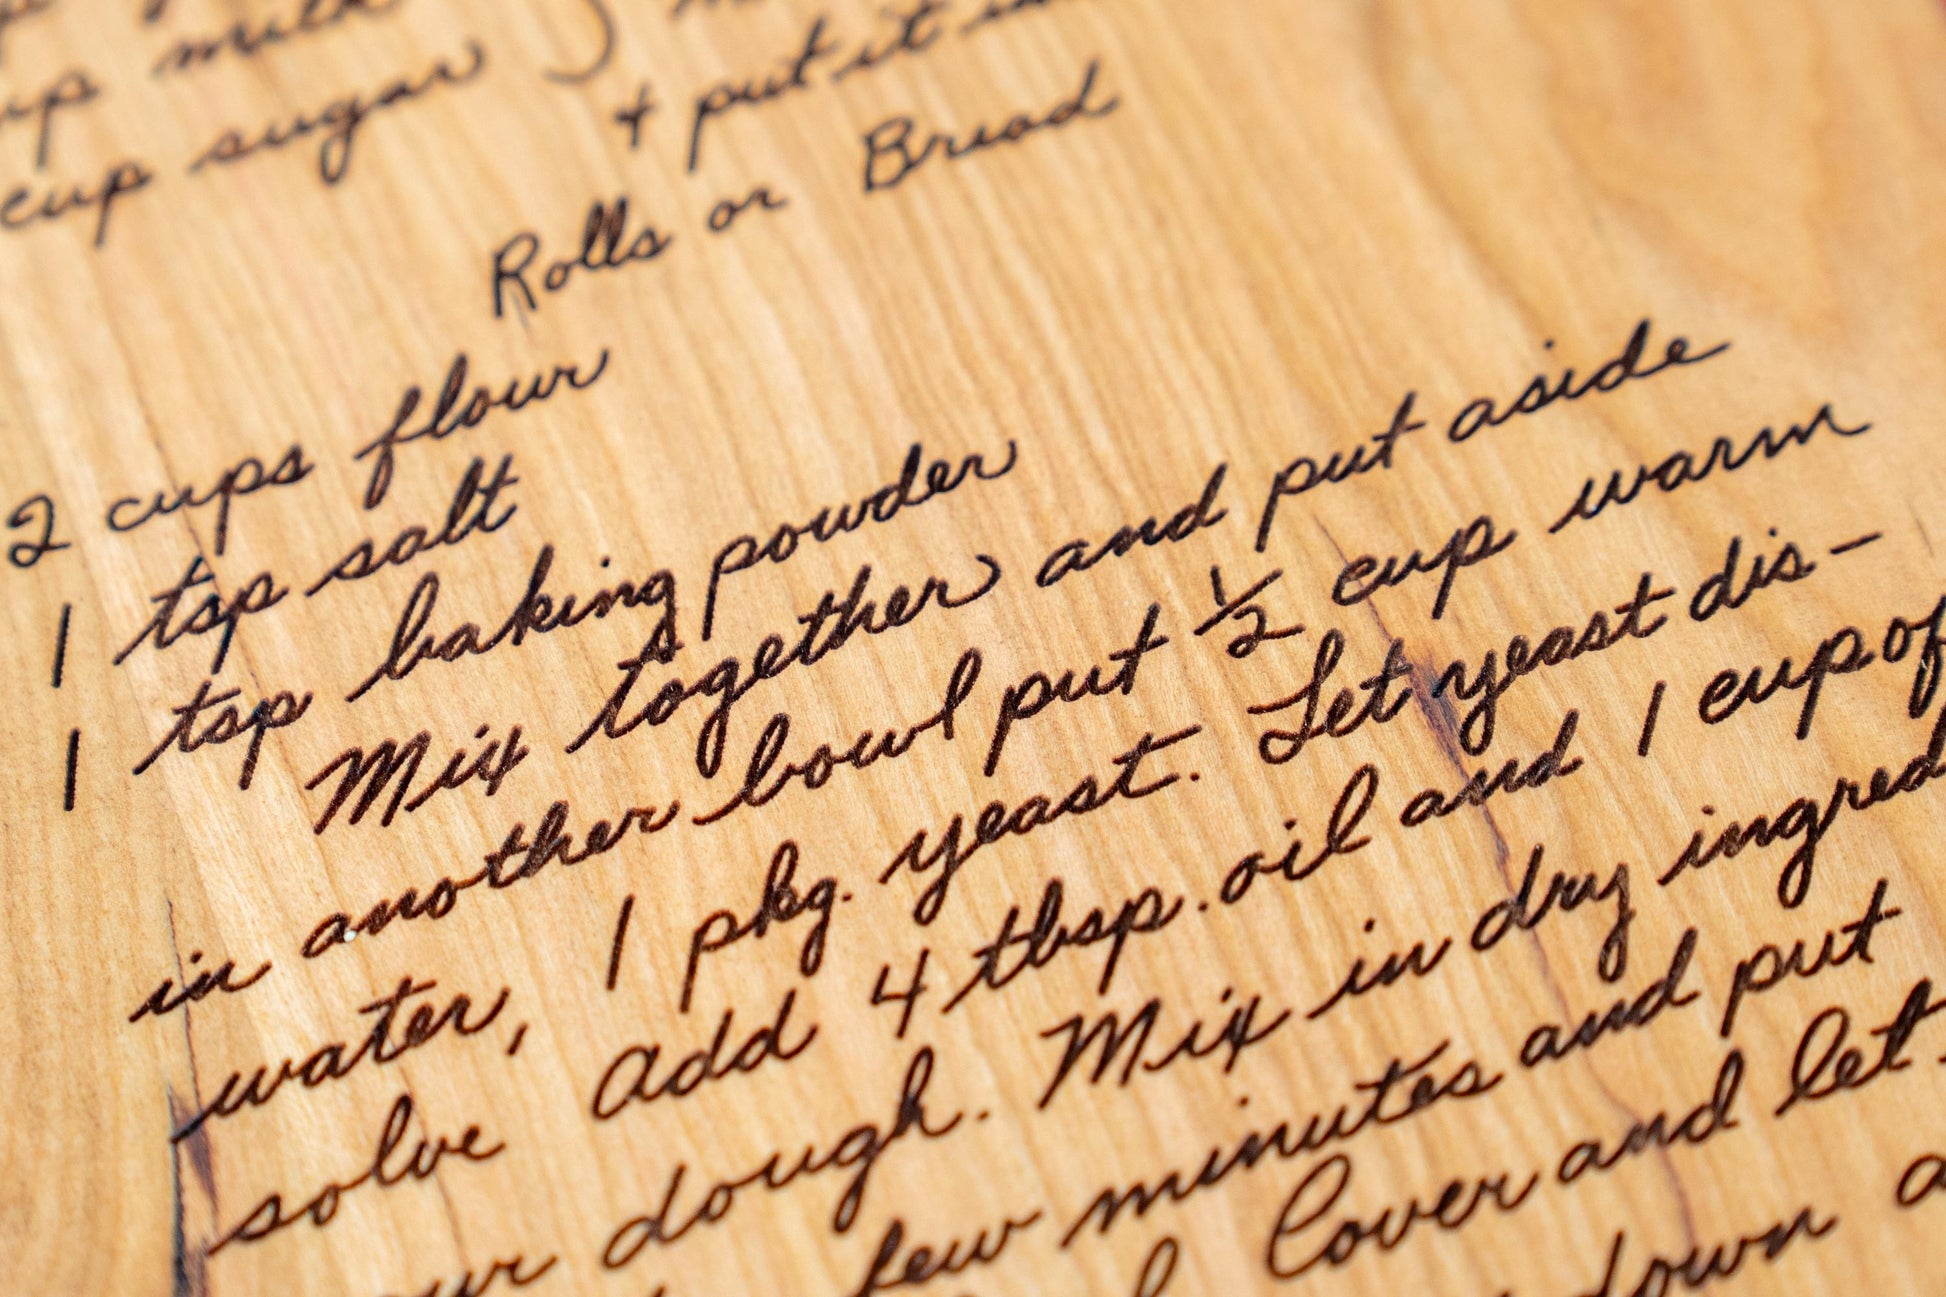 milk
cup sugar
+ put it in
Rolls or Bread
2 cups flour
1 tsp salt
1 tsp baking powder
Mix together and put aside
in another bowl put 1/2 cup warm
water, 1 pkg. yeast. Let yeast dis-
solve Add 4 tbsp. oil and 1 cup of
dough. Mix in dry ingred
few minutes and put
Cover and let
down